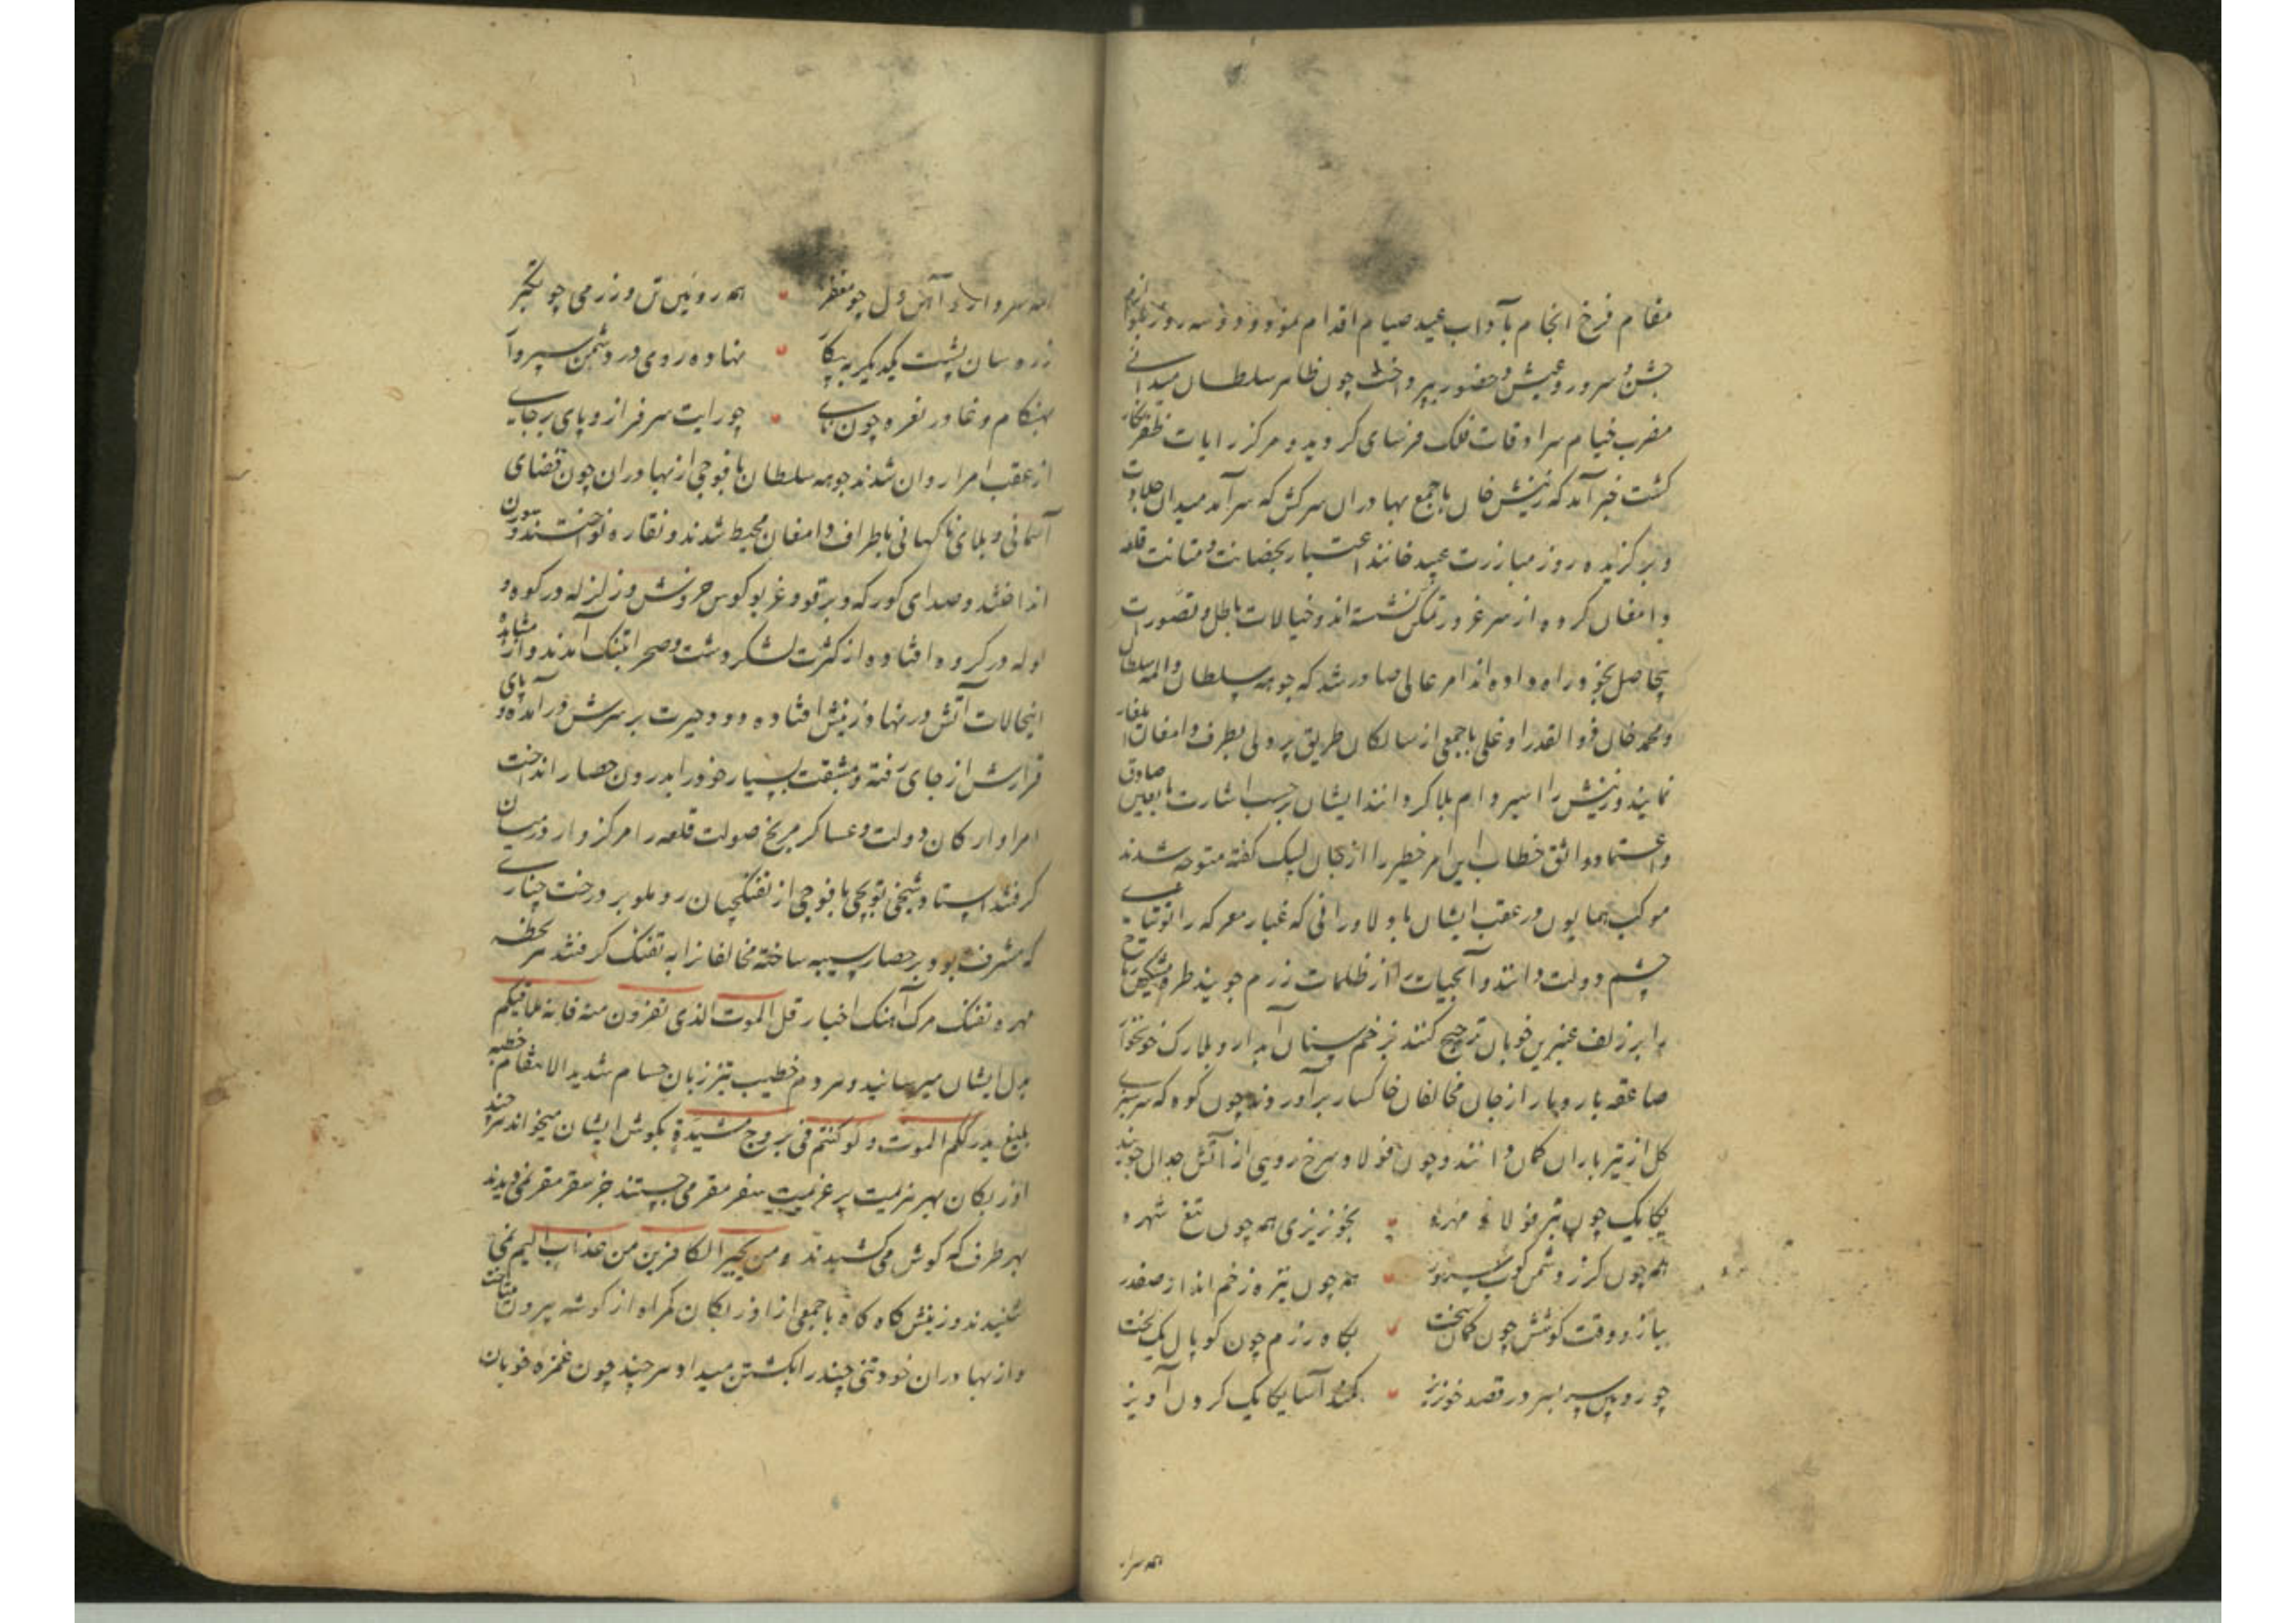 مقام فرخ انجام بآداب عید صیام اقدام نمودند و سه روز بلوازم
جشن و سرور و عیش و حضور بپرداخت چون ظاهر سلطان میدانی
مضرب خیام سرادقات فلک فرسای گردید و مرکز رایات ظفرنگار
کشت خبر آمد که زینش خان با جمع بهادران سرکش که سرآمد میدان جلادت
و برگزیده روز مبارزت عبید خانند اعتبار بحصانت و متانت قلعه
دامغان کرده از سر غرور تمکن نشسته اند و خیالات باطل و تصورات
بیحاصل بخود راه داده اند امر عالی صادر شد که جوهه سلطان والمه سلطان
و محمد خان ذوالقدر اوغلی با جمعی از سالکان طریق پر دلی بطرف دامغان ایلغار
نمایند و زینش را اسیر دام بلا گردانند ایشان برحسب اشارت بایقین صادق
و اعتماد واثق خطاب این امر خطیر را از جان لبیک گفته متوجه شدند
موکب همایون در عقب ایشان با دلاورانی که غبار معرکه را توتیای
چشم دولت دانند و آبحیات را از ظلمات رزم جویند طره مشکین رماح
را بر زلف عنبرین خوبان ترجیح کنند بزخم سنان آبدار و بلارک خونخوار
صاعقه بار دمار از جان مخالفان خاکسار برآورند چون کوه که سرسبزی
کل از تیر باران کمان دانند و چون فولاد سرخ رویی از آتش جدال جویند
یکایک چون تبر فولاد مهره بخونریزی همه چون تیغ شهره
همه چون کرز دشمن کوب همه چون نیزه زخم انداز صفدر
ببازو وقت کوشش چون کمان سخت بگاه رزم چون کوپال یک لخت
چو زوبین سر بسر در قصد خونریز کمند آسا یکایک گردن آویز
همه سراـ
همه سردار و آهن دل چو مغفر همه رویین تن و رزمی چو خنجر
زره سان پشت یکدیگر به پیکار نهاده روی در دشمن سپروار
بهنکام وغا در نعره چون نای چو رایت سرفراز و پای برجای
از عقب امرا روان شدند جوهه سلطان با فوجی از بهادران چون قضای
آسمانی و بلای ناکهانی باطراف دامغان محیط شدند و نقاره نواختند و سورن
انداختند و صدای کورکه و برقو و غریو کوس خروش و زلزله در کوه و
ولوله در گروه افتاده از کثرت لشکر دشت و صحرا بتنک آمدند و از مشاهده
اینحالات آتش در نهاد زینش افتاده دود حیرت بر سرش درآمده و پای
قرارش از جای رفته و بمشقت بسیار خود را بدرون حصار انداخت
امرا و ارکان دولت و عساکر مریخ صولت قلعه را مرکزوار در میان
گرفتند استاد شیخی توپچی با فوجی از تفنگچیان روملو بر درخت چناری
که مشرف بود بر حصار سیبه ساخته مخالفانرا به تفنک گرفتند هر لحظه
مهره تفنک مرک آهنک اخبار قل الموت الذی تفرون منه فانه ملاقیکم
بدل ایشان میرسانید و هر دم خطیب تیز زبان حسام شدید الانتقام خطبه
بلیغ یدرککم الموت و لو کنتم فی بروج مشیدة بکوش ایشان میخواند هر چند
اوزبکان بهر هزیمت پر غنیمت مفر مقر می جستند جز سقر مقر نمی دیدند
بهر طرف که گوش می کشیدند و من یجیر الکافرین من عذاب الیم نمی
شنیدند و زینش گاه گاه با جمعی از اوزبکان گمراه از گوشه بیرون میتاخت
و از بهادران خود تنی چند را بکشتن میداد و هر چند چون غمزه خوبان